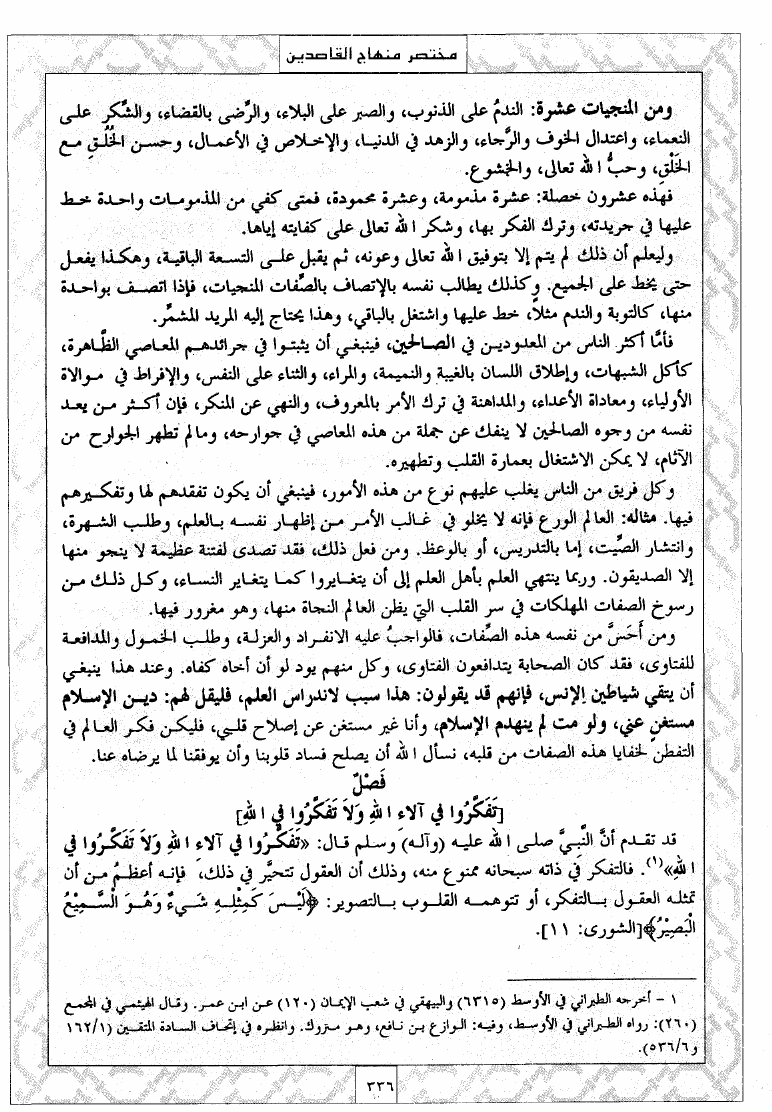 مختصر منهاج القاصدين
ومن المنجيات عشرة: الندمُ على الذنوب، والصبر على البلاء، والرِّضى بالقضاء، والشُّكر على
النعماء، واعتدال الخوف والرَّجاء، والزهد في الدنيا، والإخلاص في الأعمال، وحسن الخُلُقِ مع
الخَلْقِ، وحبُّ الله تعالى، والخشوع.
فهذه عشرون خصلة: عشرة مذمومة، وعشرة محمودة، فمتى كفي من المذمومات واحدة خط
عليها في جريدته، وترك الفكر بها، وشكر الله تعالى على كفايته إياها.
وليعلم أن ذلك لم يتم إلا بتوفيق الله تعالى وعونه، ثم يقبل على التسعة الباقية، وهكذا يفعل
حتى يخط على الجميع. وكذلك يطالب نفسه بالإتصاف بالصِّفات المنجيات، فإذا اتصف بواحدة
منها، كالتوبة والندم مثلاً، خط عليها واشتغل بالباقي، وهذا يحتاج إليه المريد المشمِّر.
فأمَّا أكثر الناس من المعدودين في الصالحين، فينبغي أن يثبتوا في جرائدهم المعاصي الظَّاهرة،
كأكل الشبهات، وإطلاق اللسان بالغيبة والنميمة، والمراء، والثناء على النفس، والإفراط في موالاة
الأولياء، ومعاداة الأعداء، والمداهنة في ترك الأمر بالمعروف، والنهي عن المنكر، فإن أكثر من يعد
نفسه من وجوه الصالحين لا ينفك عن جملة من هذه المعاصي في جوارحه، ومالم تطهر الجوارح من
الآثام، لا يمكن الاشتغال بعمارة القلب وتطهيره.
وكل فريق من الناس يغلب عليهم نوع من هذه الأمور، فينبغي أن يكون تفقدهم لها وتفكيرهم
فيها. مثاله: العالم الورع فإنه لا يخلو في غالب الأمر من إظهار نفسه بالعلم، وطلب الشهرة،
وانتشار الصِّيت، إما بالتدريس، أو بالوعظ. ومن فعل ذلك، فقد تصدى لفتنة عظيمة لا ينجو منها
إلا الصديقون. وربما ينتهي العلم بأهل العلم إلى أن يتغايروا كما يتغاير النساء، وكل ذلك من
رسوخ الصفات المهلكات في سر القلب التي يظن العالم النجاة منها، وهو مغرور فيها.
ومن أَحَسَّ من نفسه هذه الصِّفات، فالواجبُ عليه الانفراد والعزلة، وطلب الخمول والمدافعة
للفتاوى، فقد كان الصحابة يتدافعون الفتاوى، وكل منهم يود لو أن أخاه كفاه. وعند هذا ينبغي
أن يتقي شياطين الإنس، فإنهم قد يقولون: هذا سبب لاندراس العلم، فليقل لهم: دين الإسلام
مستغنٍ عني، ولو مت لم ينهدم الإسلام، وأنا غير مستغن عن إصلاح قلبي، فليكن فكر العالم في
التفطن لخفايا هذه الصفات من قلبه، نسأل الله أن يصلح فساد قلوبنا وأن يوفقنا لما يرضاه عنا.
فَصْلٌ
[تَفَكَّرُوا في آلاءِ اللهِ وَلاَ تَفَكَّرُوا في اللهِ]
قد تقدم أنَّ النَّبيَّ صلى الله عليه (وآله) وسلم قال: «تَفَكَّرُوا في آلاءِ اللهِ وَلاَ تَفَكَّرُوا في
اللهِ»(١). فالتفكر في ذاته سبحانه ممنوع منه، وذلك أن العقول تتحيَّر في ذلك، فإنه أعظمُ من أن
تمثله العقول بالتفكر، أو تتوهمه القلوب بالتصوير: ﴿لَيْسَ كَمِثْلِهِ شَيءٌ وَهُوَ السَّمِيْعُ
الْبَصِيْرُ﴾[الشورى: ١١].
١ - أخرجه الطبراني في الأوسط (٦٣١٥) والبيهقي في شعب الإيمان (١٢٠) عن ابن عمر. وقال الهيثمي في المجمع
(٢٦٠): رواه الطبراني في الأوسط، وفيه: الوازع بن نافع، وهو متروك. وانظره في إتحاف السادة المتقين (١٦٢/١
و٥٣٦/٦).
٣٣٦